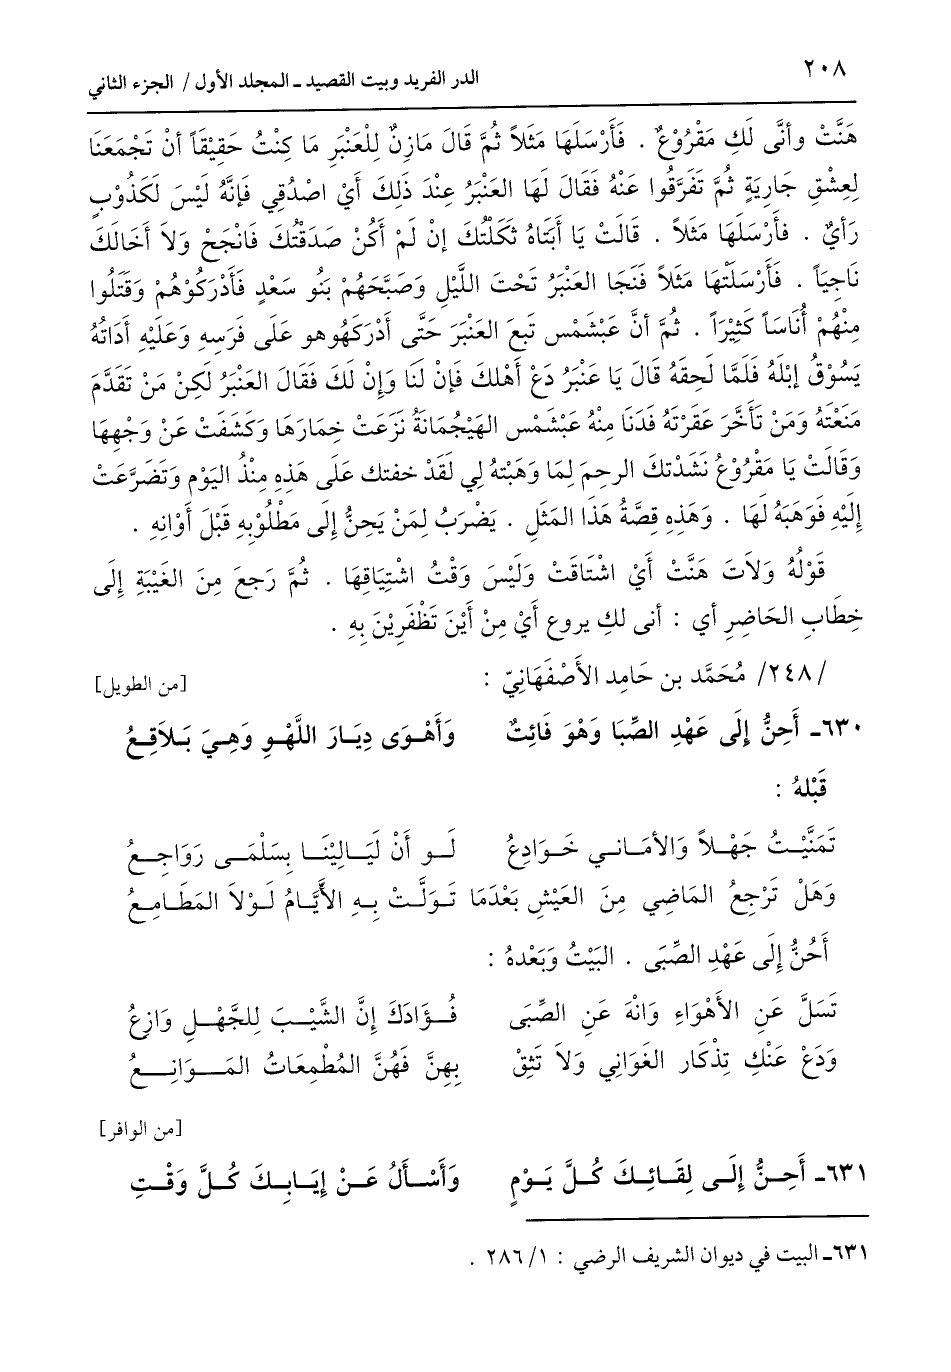 ٢٠٨ الدر الفريد وبيت القصيد ـ المجلد الأول / الجزء الثاني
هَنَّتْ وأنَّى لَكِ مَقْرُوْعٌ . فَأَرْسَلَهَا مَثَلاً ثُمَّ قَالَ مَازِنٌ لِلْعَنْبَرِ مَا كِنْتُ حَقِيْقَاً أنْ تَجْمَعَنَا
لِعِشْقِ جَارِيَةٍ ثُمَّ تَفَرَّقُوا عَنْهُ فَقَالَ لَهَا العَنْبَرُ عِنْدَ ذَلِكَ أيْ اصْدُقِي فَإنَّهُ لَيْسَ لَكَذُوْبٍ
رَأيٌ . فَأَرْسَلَهَا مَثَلاً . قَالَتْ يَا أبَتَاهُ ثَكَلْتُكَ إنْ لَمْ أكُنْ صَدَقْتُكَ فَانْجَحْ وَلاَ أخَالكَ
نَاجِيَاً . فَأَرْسَلَتْهَا مَثَلاً فَنَجَا العَنْبَرُ تَحْتَ اللَّيْلِ وَصَبَّحَهُمْ بَنُو سَعْدٍ فَأَدْرَكُوْهُمْ وَقَتَلُوا
مِنْهُمْ أُنَاسَاً كَثِيْرَاً . ثُمَّ أنَّ عَبْشَمْسِ تَبعَ العَنْبَرَ حَتَّى أدْرَكَهُوهو عَلَى فَرَسِهِ وَعَلَيْهِ أدَاتُهُ
يَسُوْقُ إبْلَهُ فَلَمَّا لَحِقَهُ قَالَ يَا عَنْبَرُ دَعْ أهْلكَ فَإنْ لَنَا وَإنْ لَكَ فَقَالَ العَنْبَرُ لَكِنْ مَنْ تَقَدَّمَ
مَنَعْتَهُ وَمَنْ تَأَخَّرَ عَقَرْتَهُ فَدَنَا مِنْهُ عَبْشَمْسِ الهَيْجُمَانَةُ نَزَعَتْ خِمَارَهَا وَكَشَفَتْ عَنْ وَجْهِهَا
وَقَالَتْ يَا مَقْرُوْعُ نَشَدْتكَ الرحِمَ لِمَا وَهَبْتهُ لِي لَقَدْ خفتك عَلَى هَذِهِ مِنْذُ اليَوْمِ وَتَضَرَّعَتْ
إلَيْهِ فَوَهَبَهُ لَهَا . وَهَذِهِ قِصَّةُ هَذَا المَثَلِ . يَضْرَبُ لِمَنْ يَحِنُّ إلَى مَطْلُوْبِهِ قَبْلَ أوْانِهِ .
قَوْلُهُ وَلاَتَ هَنَّتْ أيْ اشْتَاقَتْ وَلَيْسَ وَقْتُ اشْتِيَاقِهَا . ثُمَّ رَجعَ مِنَ الغَيْبَةِ إلَى
خِطَابِ الحَاضِرِ أي : أنى لكِ يروع أيْ مِنْ أيْنَ تَظْفَرِيْنَ بِهِ .
/٢٤٨/ مُحَمَّد بن حَامِد الأَصْفَهَانِيّ : [من الطويل]
٦٣٠ـ أَحِنُّ إلَى عَهْدِ الصِّبَا وَهْوَ فَائِتٌ وَأَهْوَى دِيَارَ اللَّهْوِ وَهِيَ بَلاَقِعُ
قَبْلهُ :
تَمَنَّيْتُ جَهْلاً وَالأمَانِي خَوَادِعُ لَو أنْ لَيَالِيْنَا بِسَلْمَى رَوَاجِعُ
وَهَلْ تَرْجعُ المَاضِي مِنَ العَيْشِ بَعْدَمَا تَولَّتْ بِهِ الأَيَّامُ لَوْلاَ المَطَامِعُ
أحُنُّ إلَى عَهْدِ الصِّبَى . البَيْتُ وَبَعْدهُ :
تَسَلَّ عَنِ الأَهْوَاءِ وَانْهَ عَنِ الصِّبَى فُؤَادَكَ إنَّ الشَّيْبَ لِلجَّهْلِ وَازِعُ
وَدَعْ عَنْكِ تِذْكَار الغَوَانِي وَلاَ تَثِقْ بِهِنَّ فَهُنَّ المُطْمِعَاتُ المَوَانِعُ
[من الوافر]
٦٣١ـ أَحِنُّ إلَى لِقَائِكَ كُلَّ يَوْمٍ وَأَسْأَلُ عَنْ إيَابِكَ كُلَّ وَقْتِ
٦٣١ـ البيت في ديوان الشريف الرضي : ١/ ٢٨٦ .